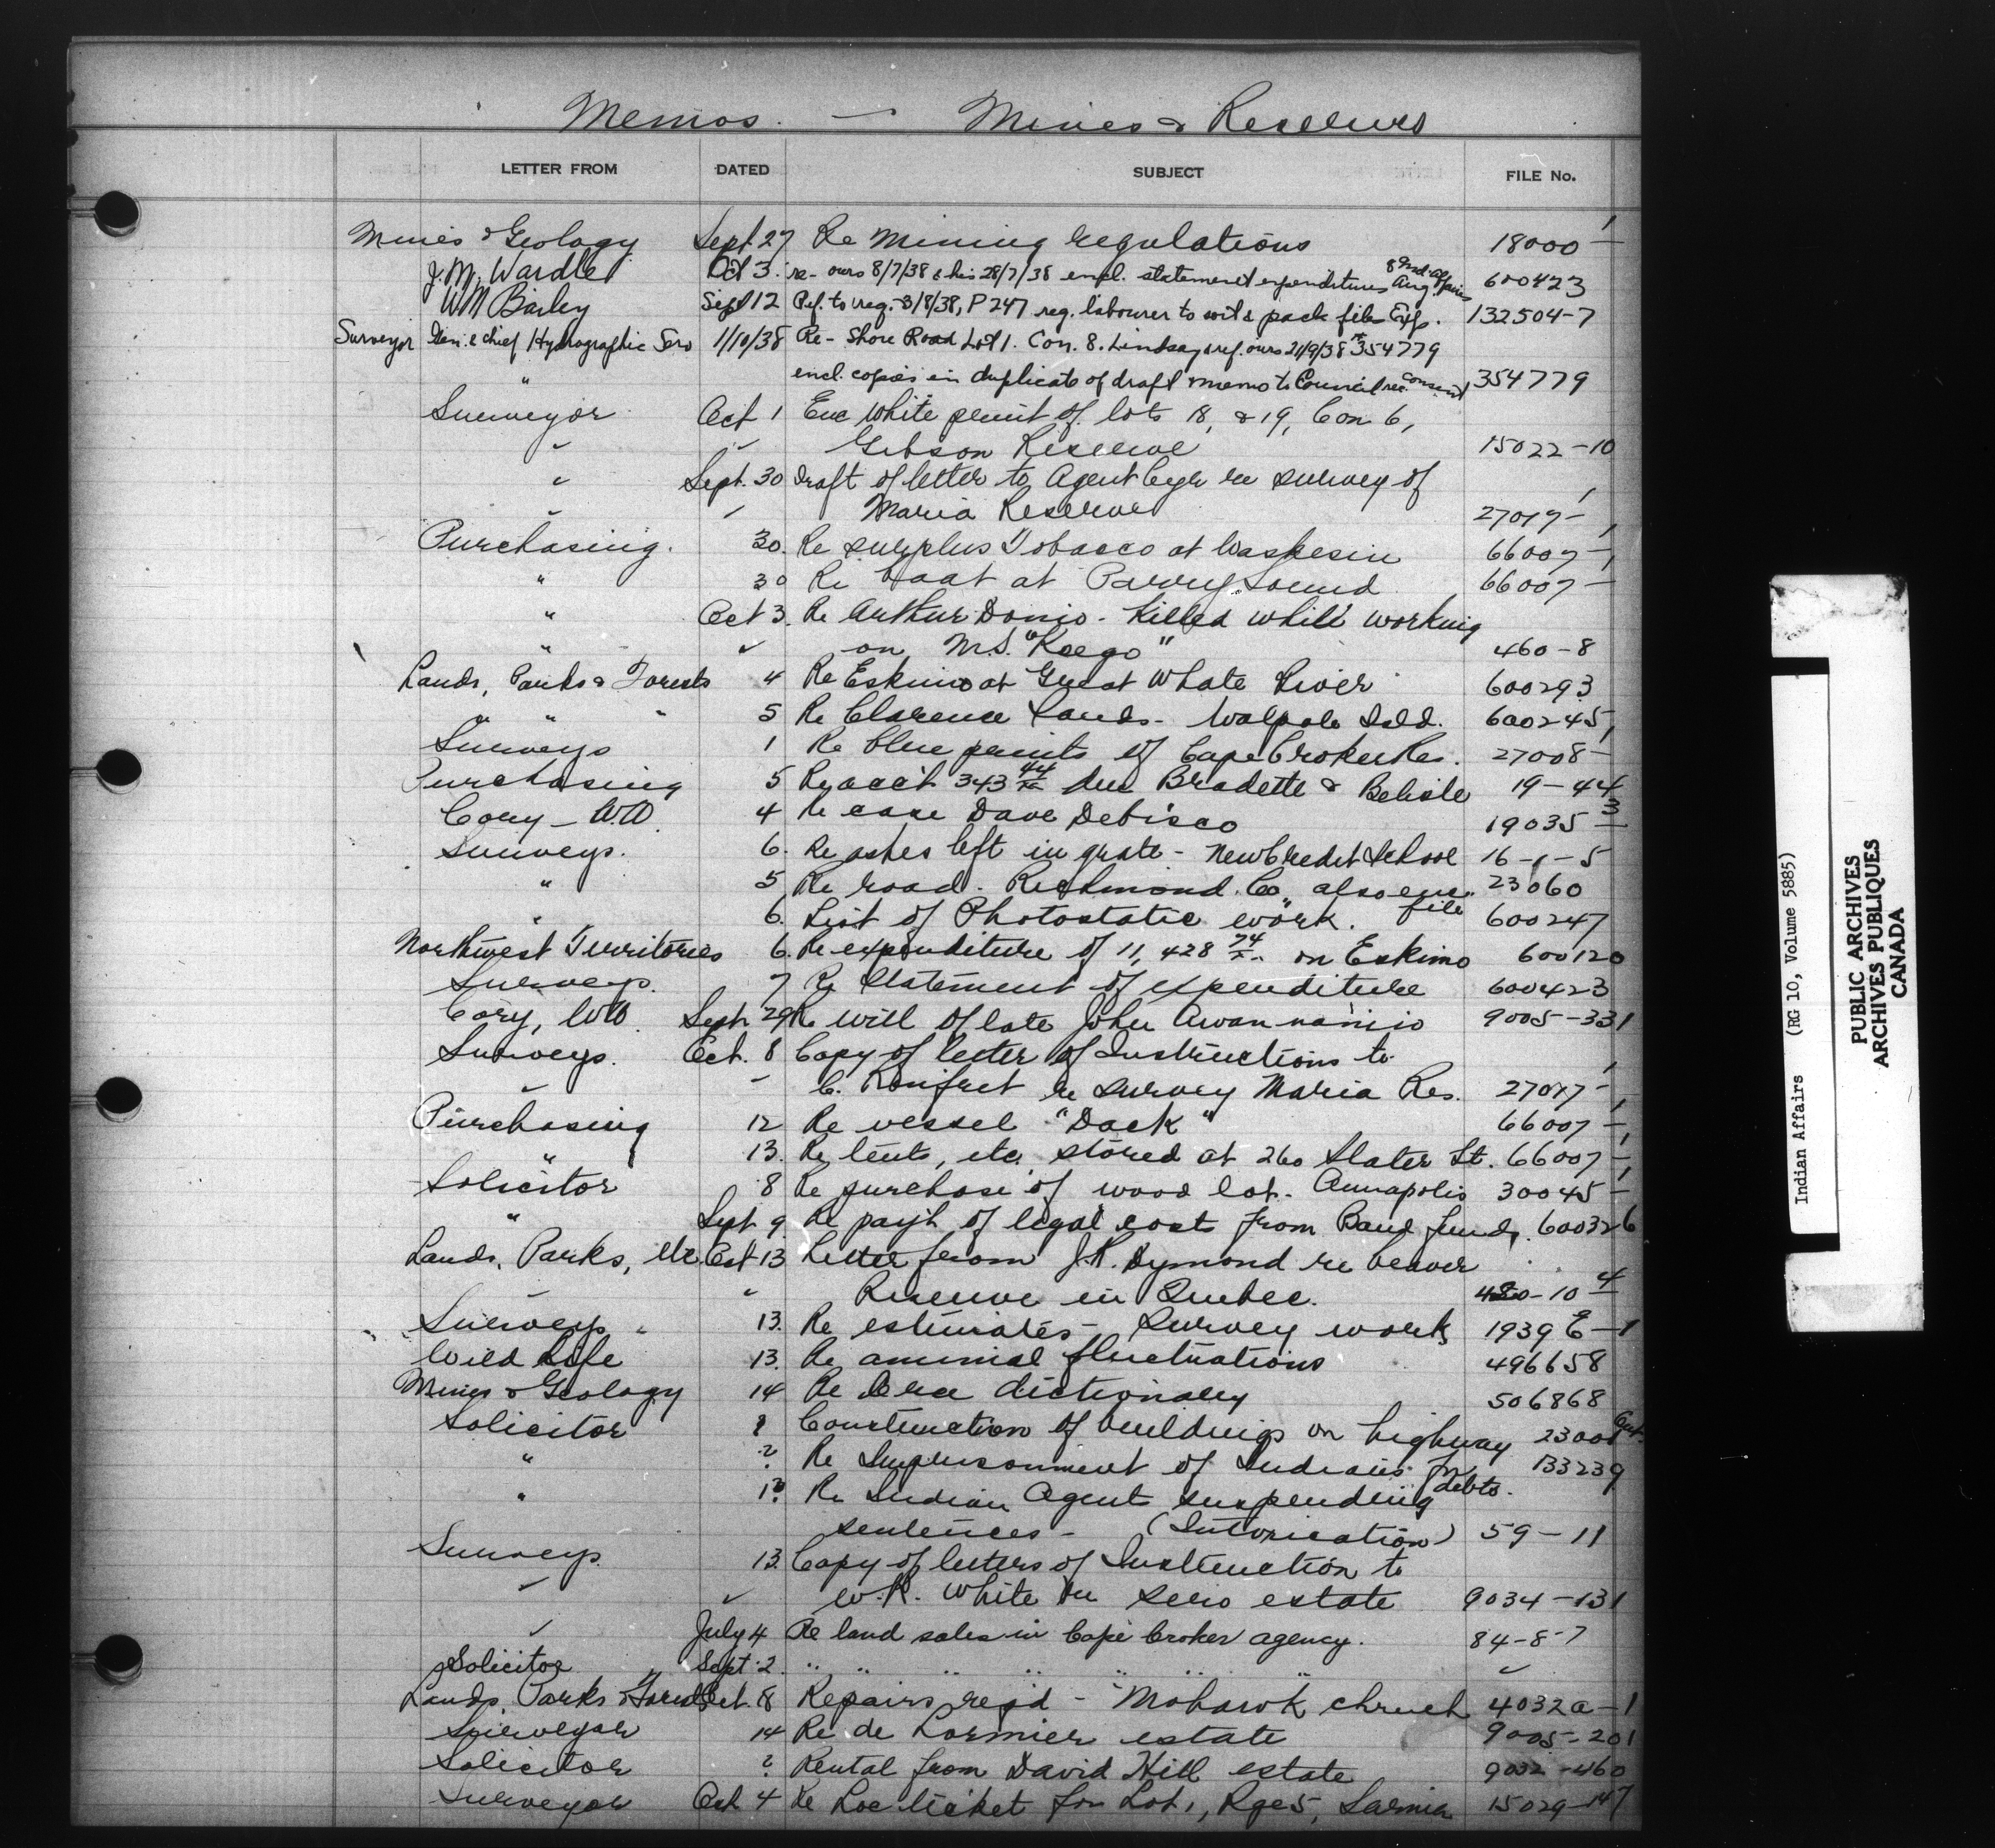 Memos. — Mines & Reserves
LETTER FROM DATED SUBJECT FILE No.
Mines & Geology Sept. 27 Re Mining regulations 18000-1
J.M. Wardle Oct 3. re- ours 8/7/38 & his 28/7/38 encl. statement expenditures Aug. 600423
WM Bailey Sept 12 Ref. to req. 3/8/38, P 247 reg. labourer to & pack files Exps. 132504-7
Surveyor Gen. & Chief Hydrographic Serv 1/10/38 Re- Shore Road Lot 1. Con. 8. Lindsay & ref. ours 21/9/38 354779
encl. copies in duplicate of draft memo to Council re consent 354779
Surveyor Oct 1 Enc white print of lots 18, & 19, Con 6,
" " Gibson Reserve 15022-10
" Sept. 30 Draft of letter to Agent Cyr re survey of
" " Maria Reserve 27017-1
Purchasing. 30. Re surplus Tobacco at Waskesiu 66007-1
" 30 Re boat at Parry Sound 66007-1
" Oct 3. Re Arthur Donio - Killed while working
" " on M.S. "Keego" 460-8
Lands, Parks & Forests 4 Re Eskimo at Great Whale River 600293
" " " 5 Re Clarence Sands - Walpole Isld. 600245
Surveys 1 Re blue prints of Cape Croker Res. 27008-1
Purchasing 5 Re acct 343 44/xx due Bradette & Belisle 19-44
Cory - W.W. 4 Re case Dave Debisco 19035-3
Surveys. 6. Re ashes left in grate - New Credit School 16-1-5
" 5 Re road - Richmond Co, also enc. file 23060
" 6. List of Photostatic work. 600247
Northwest Territories 6. Re expenditure of 11,428 74/xx on Eskimo 600120
Surveys. 7 Re Statement of expenditure 600423
Cory, WW. Sept. 29 Re will of late John 9005-331
Surveys. Oct. 8 Copy of letter of Instructions to
" " C. Rinfret re survey Maria Res. 27017-1
Purchasing 12 Re vessel "Dack" 66007-1
" 13. Re tents, etc. stored at 260 Slater St. 66007-1
Solicitor 8 Re purchase of wood lot - Annapolis 30045-1
" Sept 9 Re pay't of legal costs from Band funds. 600326
Lands, Parks, etc. Oct 13 Letter from J.R. Dymond re beaver
" " Reserve in Quebec. 420-10 4
Surveys " 13. Re estimates - Survey work 1939 E-1
Wild Life 13. Re animal fluctuations 496658
Mines & Geology 14 Re Cree dictionary 506868
Solicitor ? Construction of buildings on highway 23001 Gen.
" ? Re Imprisonment of Indians for debts. 133239
" 1? Re Indian Agents suspending
sentences - (Intoxication) 59-11
Surveys. 13. Copy of letters of Instruction to
" " W.R. White re Sero estate 9034-131
" July 4 Re land sales in Cape Croker agency. 84-8-7
Solicitor Sept. 2. " " " " " " " "
Lands, Parks & Forests Oct. 8 Repairs req'd - Mohawk chruch 4032A-1
Surveyor 14 Re de Lormier estate 9005-201
Solicitor ? Rental from David Hill estate 9032-460
Surveyor Oct 4 Re Loc ticket for Lot 1, Rge 5, Sarnia 15029-147
Indian Affairs (RG 10, Volume 5885)
PUBLIC ARCHIVES
ARCHIVES PUBLIQUES
CANADA